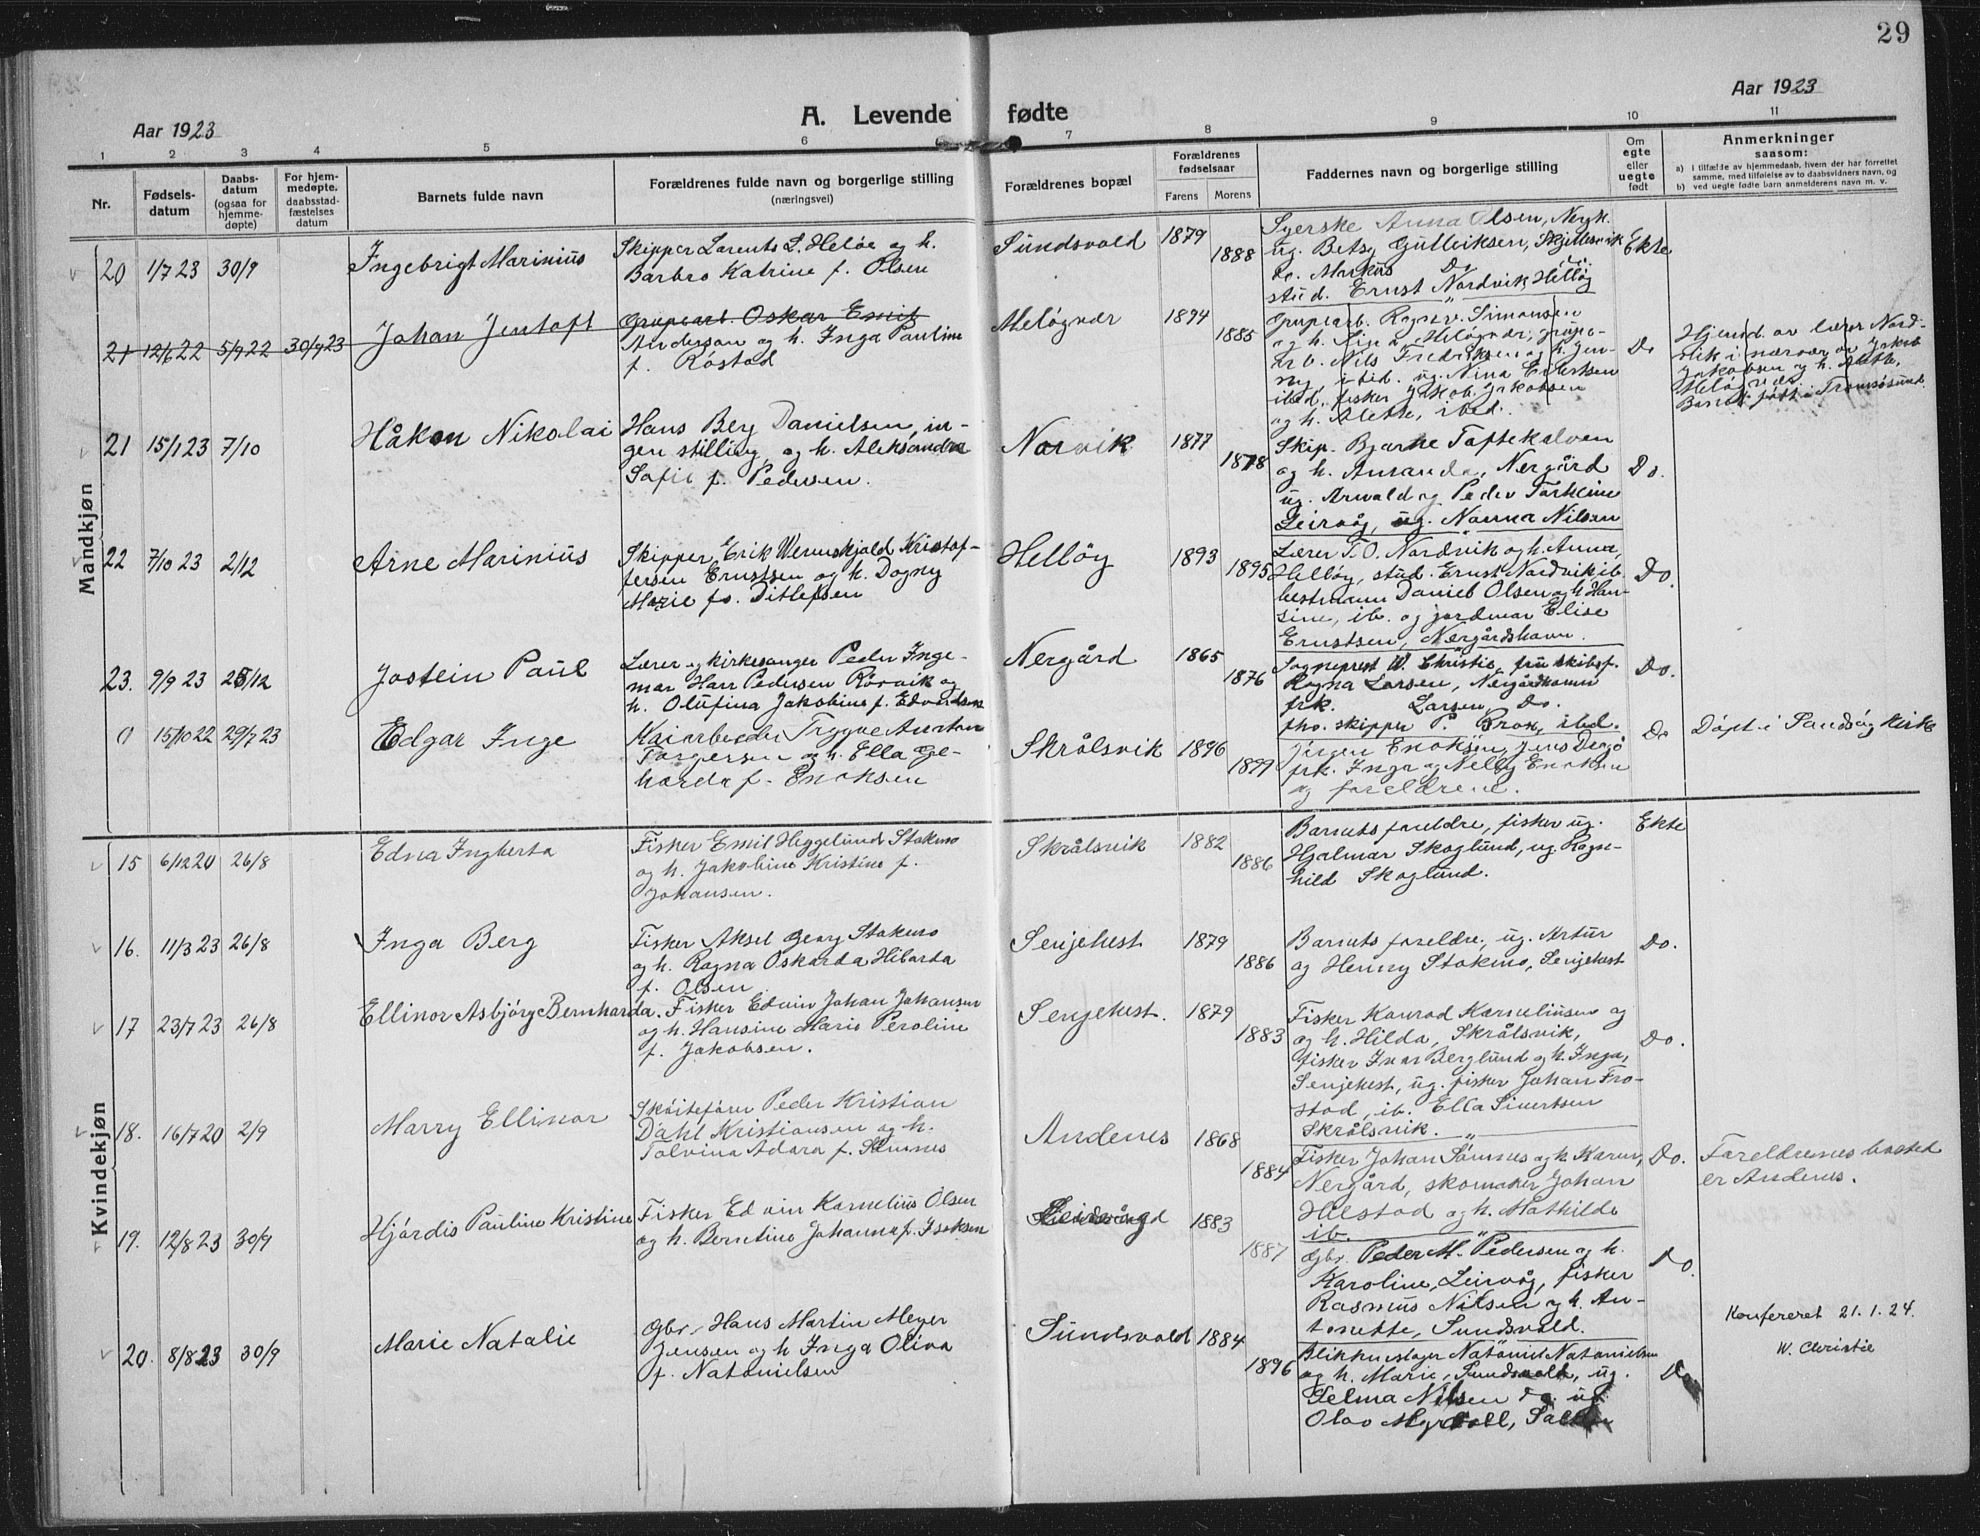 29
Aar 1923
A. Levende fødte
Aar 1923
1 2 3 4 5 6 7 8 9 10 11
Nr.
Fødsels-
datum
Daabs-
datum
(ogsaa for
hjemme-
døpte)
For hjem-
medøpte,
daabsstad-
fæstelses
datum
Barnets fulde navn
Forældrenes fulde navn og borgerlige stilling
(næringsvei)
Forældrenes bopæl
Forældrenes
fødselsaar
Farens Morens
Faddernes navn og borgerlige stilling
Om
egte
eller
uegte
født
Anmerkninger
saasom:
a) I tilfælde av hjemmedaab, hvem der har forrettet
samme, med tilføielse av to daabsvidners navn m. v.
b) ved uegte fødte barn anmelderens navn m. v.
Mandkjøn
20 1/7 23 30/9
Ingebrigt Marinius
Skipper Lorents L. Heløe og h.
Barbro Katrine f. Olsen
Sundsvold
1879
1888
Syerske Anna Olsen, Nergk.
ug. Betsy Gulleiksen, Skjellesvik
Do. Markus Do do.
stud. Ernst Nordvik Helløy
Ekte
21 12/6 22 5/9 22 30/9 23
Johan Jentoft
Grupearb. Oskar Emil
Anderson og h. Inga Pauline
f. Røstad
Meløyvær
1894
1885
Grupearb. Ragnv. Simonsen
og h. Signe, Meløyvær, grupe-
arb. Nils Fredriksen og h. Jen-
ny, ibid. ug. Nina Evertsen
ibid. fisker Jakob Jakobsen
og h. Alette, ibid.
Do
Hjemd. av lærer Nord-
vik i nærvær av Jakob
Jakobsen og h. Alette,
Meløyvær.
Barnet født i Tromsøsund.
21 15/1 23 7/10
Håkon Nikolai
Hans Berg Danielsen, in-
gen stilling, og h. Aleksandra
Sofie f. Pedersen.
Norvik
1877
1878
Skip. Bjarne Toftekalven
og h. Amanda, Nergård
ug. Arwald og Peder Torheim
Leirvåg, ug. Nanna Nilsen
Do.
22 7/10 23 2/12
Arne Marinius
Skipper Erik Wernskjold Kristof-
fersen Ernstsen og h. Dagny
Marie fø. Ditlefsen
Helløy
1893
1895
Lærer T. O. Nordvik og h. Anna,
Helløy, stud. Ernst Nordvik, ib.
bestmann Daniel Olsen og h. Han-
sine, ib. og jordmor Elise
Ernstsen, Nergårdshavn.
Do.
23. 9/9 23 25/12
Jostein Paul
Lærer og kirkesanger Peder Inge-
mar Harr Pedersen Rørvik og
h. Olufina Jakobine f. Edvardsen
Nergård
1865
1876
Sogneprest W. Christie, fru skibsf.
Ragna Larsen, Nergårdhamn
frk. Larsen, Do.
fho. skipper P. Brox, ibd.
Do.
0 15/10 22 29/7 23
Edgar Inge
Kaiarbeider Trygve Anaton
Torgersen og h. Ella Ge-
harda f. Enoksen
Skrålsvik
1896
1899
Jørgen Enoksen, Jens Dergø
frk. Inga og Nelly Enoksen
og foreldrene.
Do
Døpt i Sandsøy kirke
Kvindekjøn
15 6/12 20 26/8
Edna Ingberta
Fisker Emil Heggelund Stokmo
og h. Jakobine Kristine f.
Johansen.
Skrålsvik
1882
1886
Barnets foreldre, fisker ug.
Hjalmar Skoglund, ug. Ragn-
hild Skoglund.
Ekte
16. 11/3 23 26/8
Inga Berg
Fisker Aksel Georg Stokmo
og h. Ragna Oskarda Hibarda
f. Olsen
Senjehest
1879
1886
Barnets foreldre, ug. Artur
og Henny Stokmo, Senjehest
Do.
17 23/7 23 26/8
Ellinor Asbjørg Bernharda.
Fisker Edvin Johan Johansen
og h. Hansine Marie Peroline
f. Jakobsen.
Senjehest.
1879
1883
Fisker Konrad Korneliusen og
og h. Hilda, Skrålsvik,
fisker Ivar Berglund og h. Inga,
Senjehest, ug. fisker Johan Fro-
stad, ib. Ella Sivertsen
Skrålsvik.
Do.
18. 16/7 20 2/9
Marry Ellinor
Skøitefører Peder Kristian
Dahl Kristiansen og h.
Tolvina Adara f. Sømnes
Andenes
1868
1884
Fisker Johan Sømnes og h. Karen,
Nergård, skomaker Johan
Hilstad og h. Mathilde
ib.
Do.
Foreldrenes bosted
er Andenes.
19. 12/8 23 30/9
Hjørdis Pauline Kristine
Fisker Edvin Kornelius Olsen
og h. Berntine Johanna f. Isaksen
1883
1887
Gbr. Peder M. Pedersen og h.
Karoline, Leirvåg, fisker
Rasmus Nilsen og h. An-
tonette, Sundsvold.
Do.
20. 8/8 23 30/9
Marie Natalie
Gbr. Hans Martin Meyer
Jensen og h Inga Oliva
f. Natanielsen
Sundsvold
1884
1896
Blikkenslager Nataniel Natanielsen
og h. Marie, Sundsvold, ug.
Selma Nilsen do. ug
Olav Myrvoll,
Do
Konfereret 21.1.24.
W. Christie